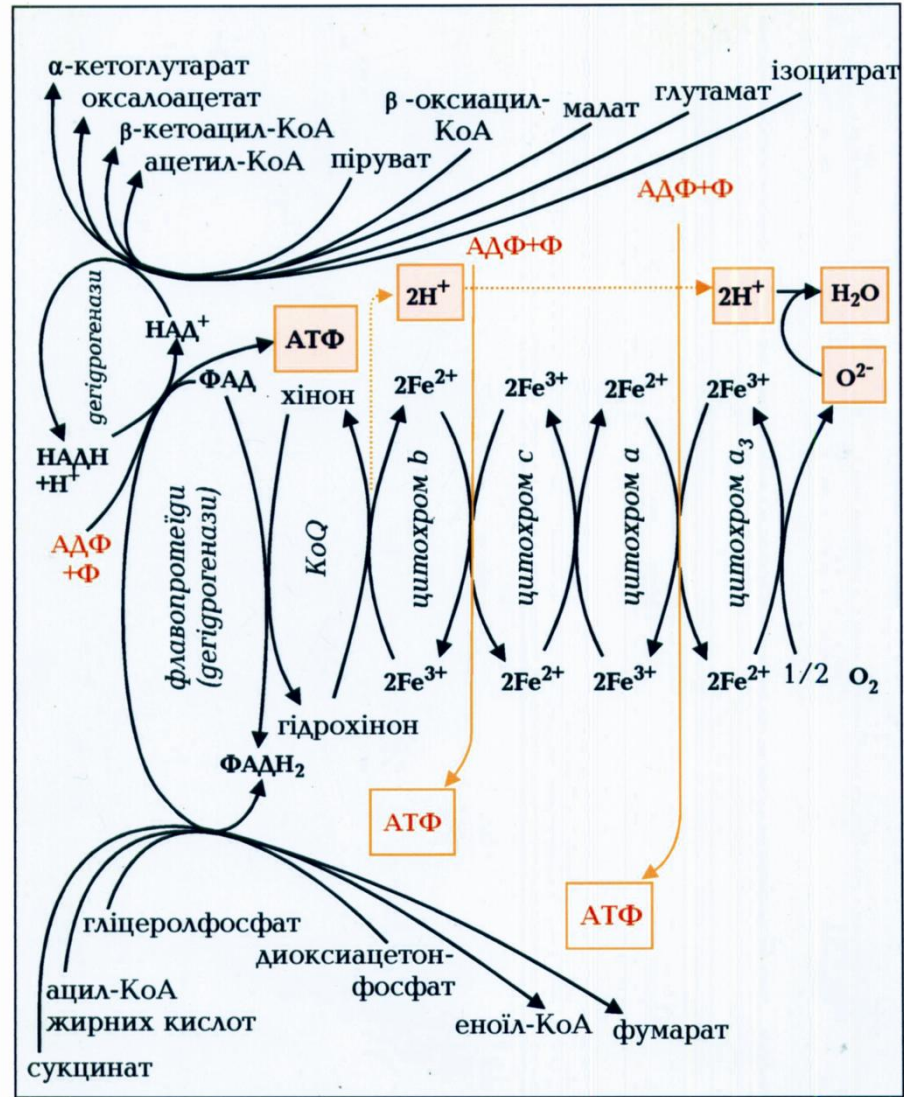 α-кетоглутарат
оксалоацетат
β-кетоацил-КоА
ацетил-КоА
піруват
β-оксиацил-
КоА
малат
глутамат
ізоцитрат
АДФ+Ф
АДФ+Ф
дегідрогенази
НАД⁺
АТФ
2H⁺
2H⁺
H₂O
O²⁻
ФАД
хінон
2Fe²⁺
2Fe³⁺
2Fe²⁺
2Fe³⁺
НАДН
+H⁺
АДФ
+Ф
флавопротеїди
(дегідрогенази)
KoQ
цитохром b
цитохром c
цитохром a
цитохром a₃
2Fe³⁺
2Fe²⁺
2Fe³⁺
2Fe²⁺
1/2 O₂
гідрохінон
ФАДН₂
АТФ
АТФ
гліцеролфосфат
диоксиацетон-
фосфат
ацил-КоА
жирних кислот
еноїл-КоА
фумарат
сукцинат